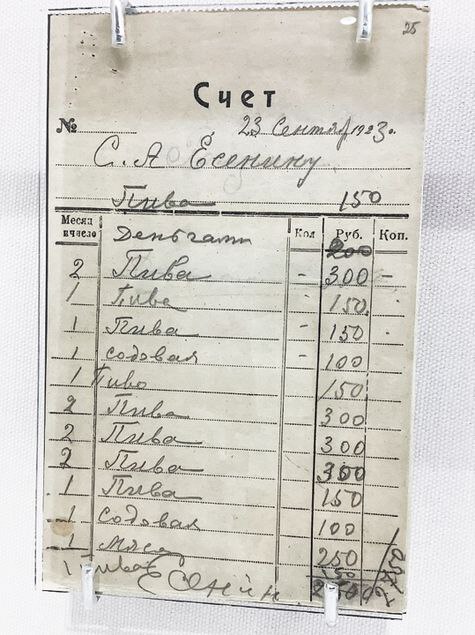 25
Счет
№ 23 Сентяб 1923г.
С. А Есенину
Пива 150
Месяц и число Деньгами Кол Руб. Коп.
200
2 Пива - 300 -
1 Пива - 150
1 Пива - 150
1 содовая 100
1 Пиво 150
2 Пива 300
2 Пива 300
2 Пива 300
1 Пива 150
1 содовая 100
1 Мясо 250
1 Пива 150
2750